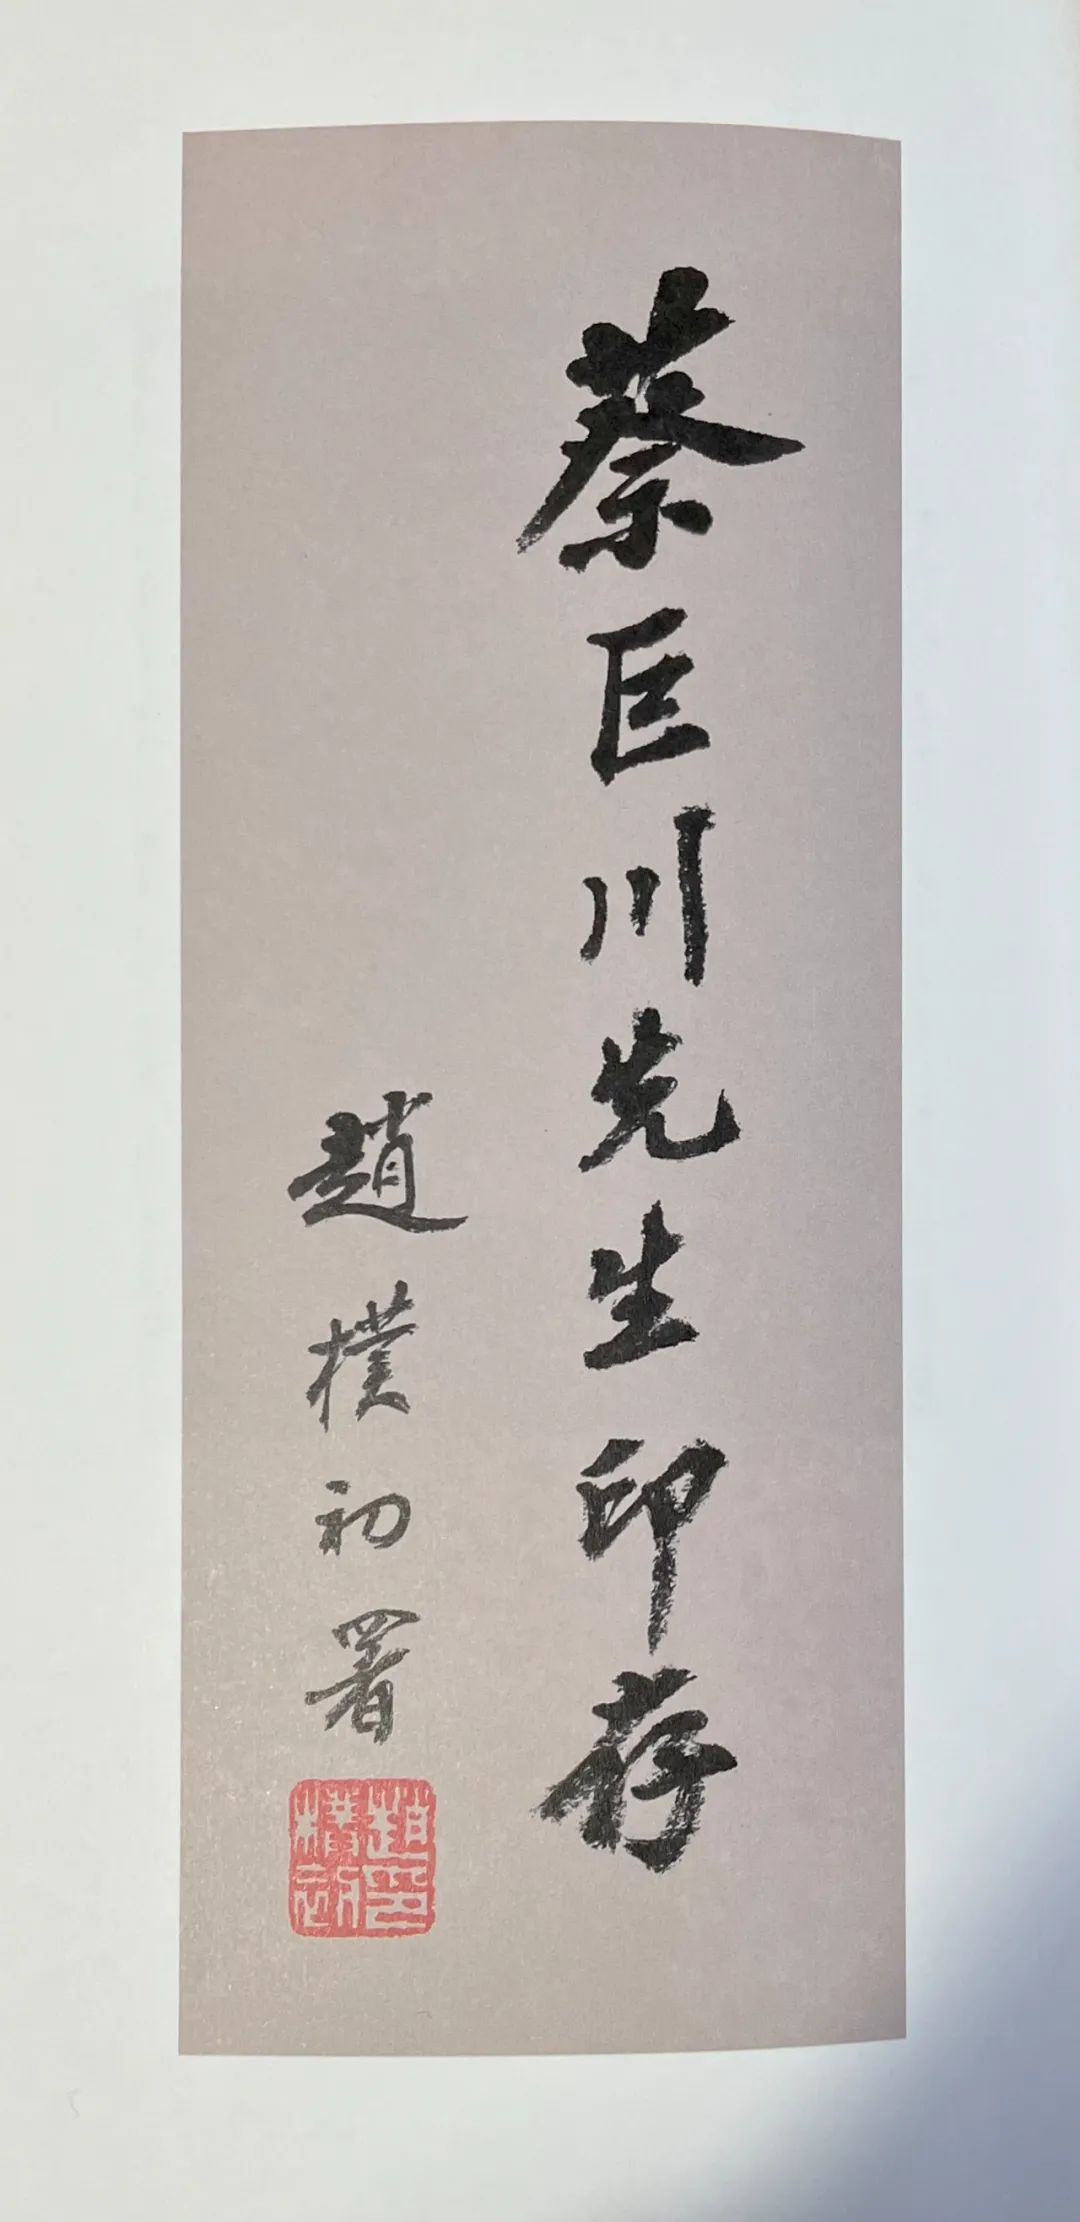 蔡巨川先生印存
趙樸初署
趙樸初印